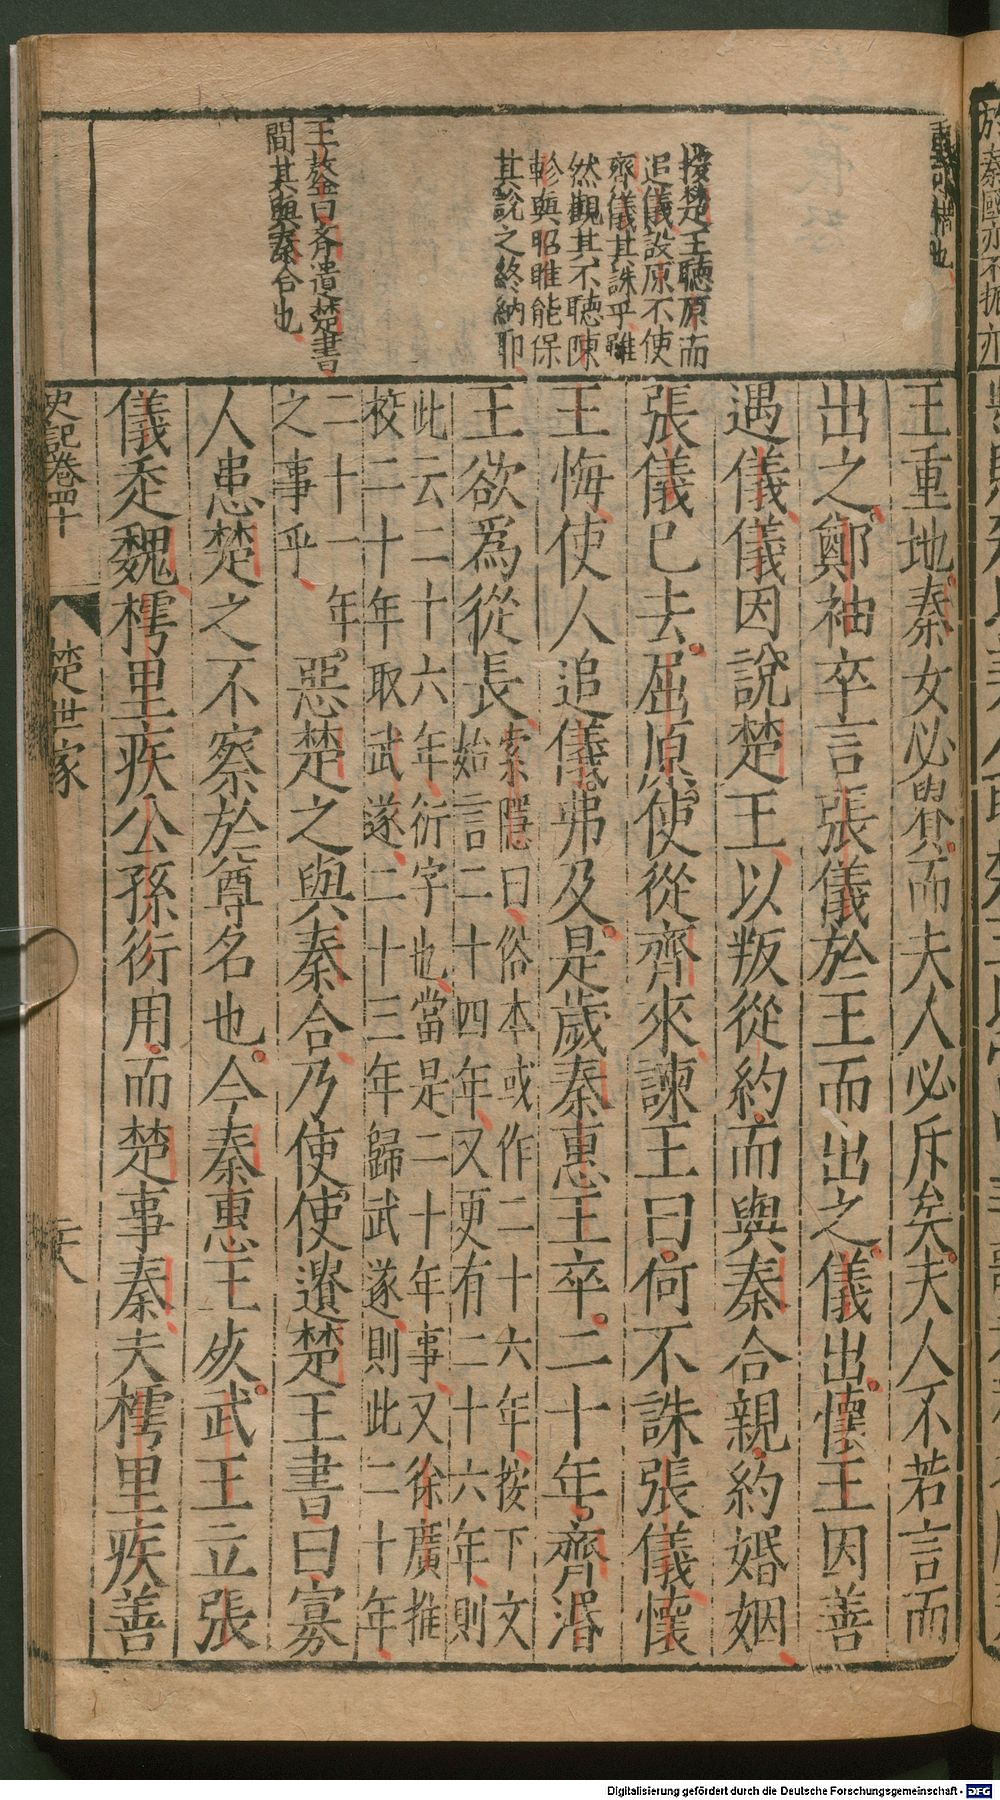 按楚王聽原而
追儀設原不使
齊儀其誅乎雖
然觀其不聽陳
軫與昭睢能保
其說之終納耶
王鏊曰齊遺楚書
間其與秦合也
王重地秦女必貴而夫人必斥矣夫人不若言而
出之鄭袖卒言張儀於王而出之儀出懷王因善
遇儀儀因說楚王以叛從約而與秦合親約婚姻
張儀已去屈原使從齊來諫王曰何不誅張儀懷
王悔使人追儀弗及是歲秦惠王卒二十年齊湣
王欲爲從長
索隱曰俗本或作二十六年按下文
始言二十四年又更有二十六年則
此云二十六年衍字也當是二十年事又徐廣推
校二十年取武遂二十三年歸武遂則此二十年
二十一年
之事乎
惡楚之與秦合乃使使遺楚王書曰寡
人患楚之不察於尊名也今秦惠王死武王立張
儀走魏樗里疾公孫衍用而楚事秦夫樗里疾善
史記卷四十
楚世家
Digitalisierung gefördert durch die Deutsche Forschungsgemeinschaft - DFG